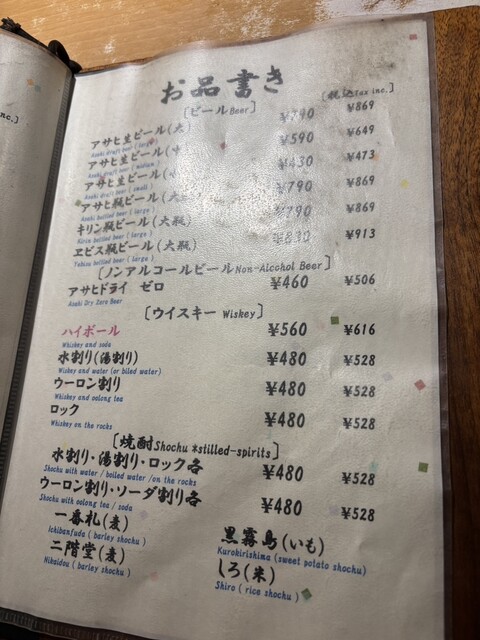 nc.]
お品書き
[税込Tax inc.]
[ビールBeer]
アサヒ生ビール(大) ¥790 ¥869
Asahi draft beer ( large )
アサヒ生ビール(中) ¥590 ¥649
Asahi draft beer ( medium )
アサヒ生ビール(小) ¥430 ¥473
Asahi draft beer ( small )
アサヒ瓶ビール(大瓶) ¥790 ¥869
Asahi bottled beer ( large )
キリン瓶ビール(大瓶) ¥790 ¥869
Kirin bottled beer ( large )
ヱビス瓶ビール(大瓶) ¥830 ¥913
Yebisu bottled beer ( large )
[ノンアルコールビールNon-Alcohol Beer]
アサヒドライ ゼロ ¥460 ¥506
Asahi Dry Zero Beer
[ウイスキー Wiskey]
ハイボール ¥560 ¥616
Whiskey and soda
水割り(湯割り) ¥480 ¥528
Wiskey and water (or biled water)
ウーロン割り ¥480 ¥528
Whiskey and oolong tea
ロック ¥480 ¥528
Whiskey on the rocks
[焼酎Shochu *stilled-spirits]
水割り・湯割り・ロック各 ¥480 ¥528
Shochu with water / boiled water /on the rocks
ウーロン割り・ソーダ割り各 ¥480 ¥528
Shochu with oolong tea / soda
一番札(麦) 黒霧島(いも)
Ichibanfuda ( barley shochu ) Kurobirishima (sweet potato shochu)
二階堂(麦) しろ(米)
Nikaidou ( barley shochu ) Shiro ( rice shochu )